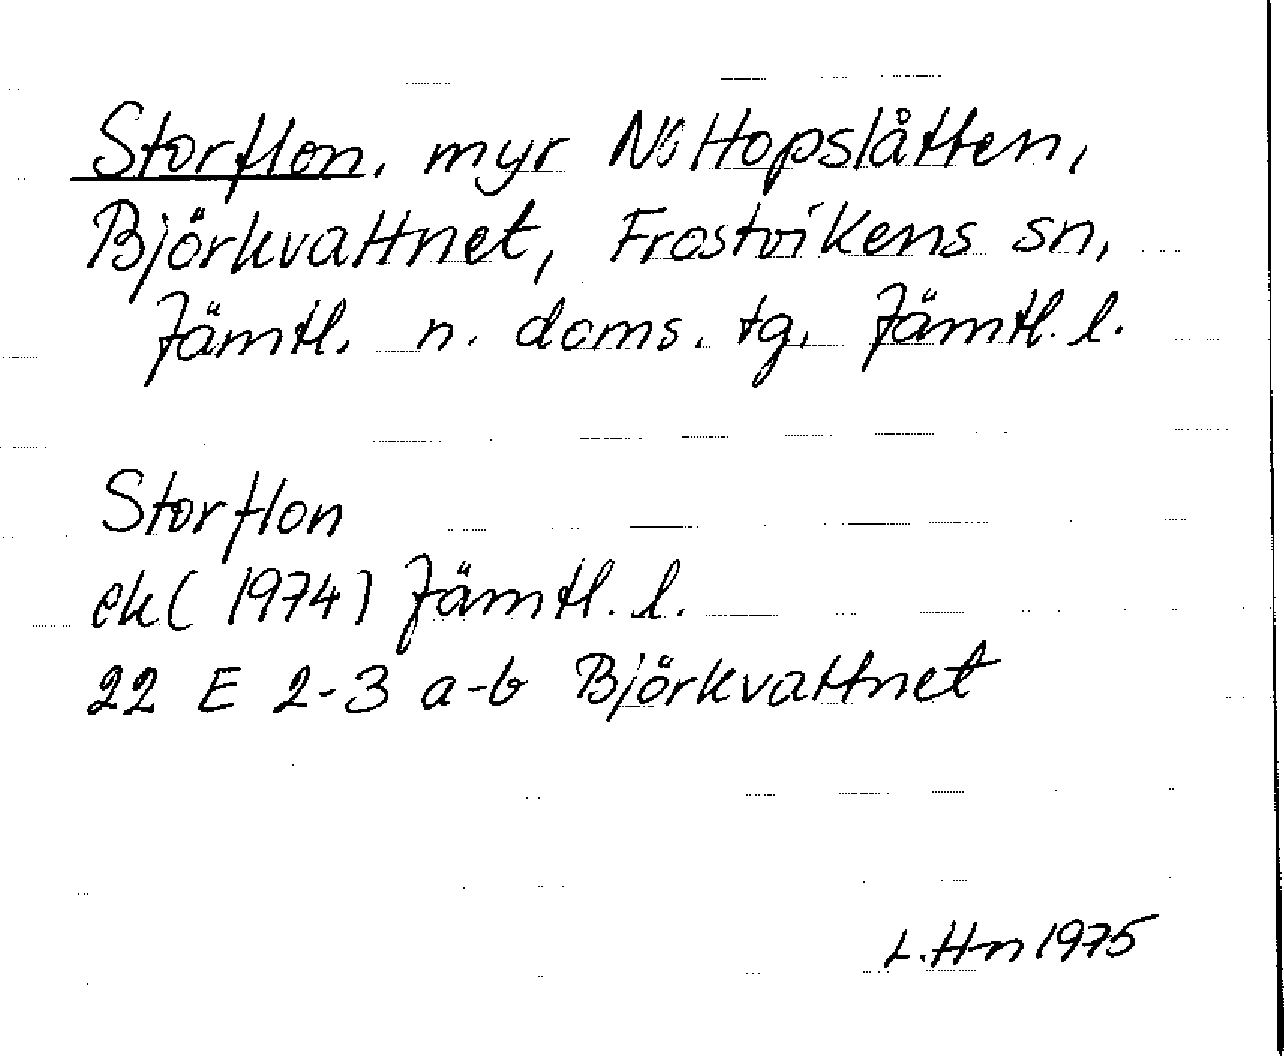 Storflon, myr NÖ Hopslåtten,
Björkvattnet, Frostvikens sn,
Jämtl. n. doms. tg, Jämtl. l.
Storflon
ek (1974) Jämtl. l.
22 E 2-3 a-b Björkvattnet
L. Hn 1975